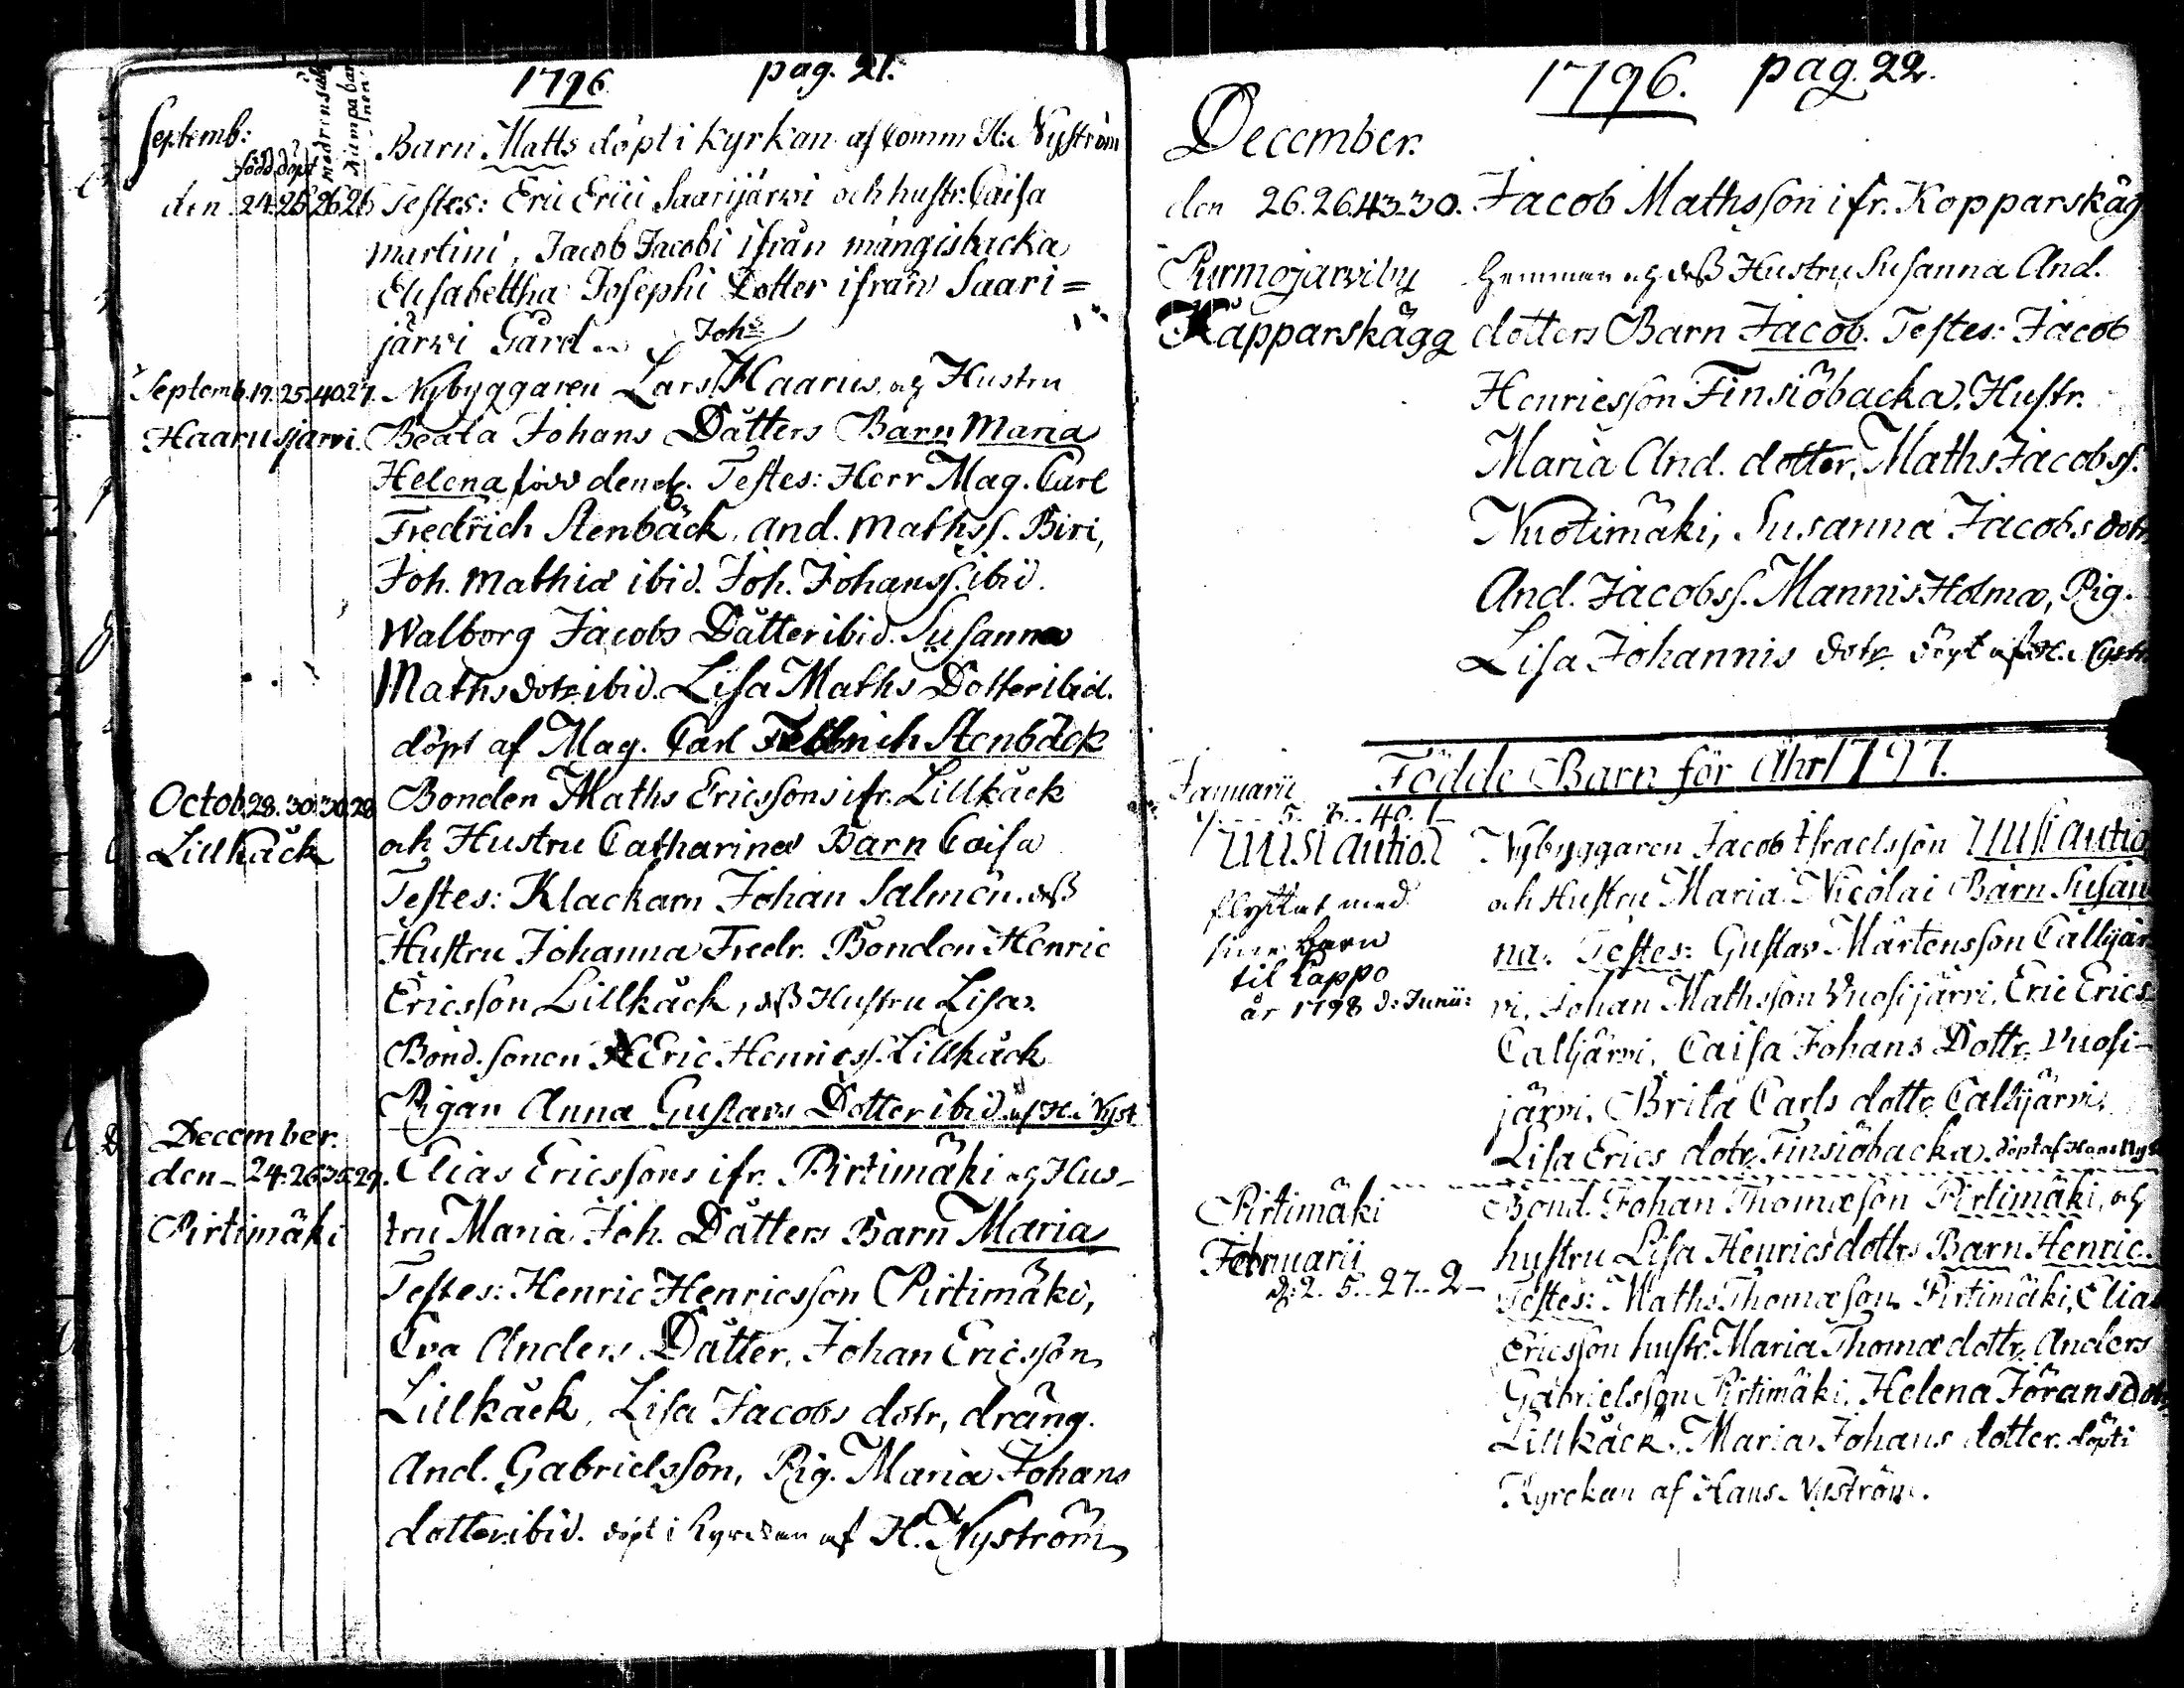 1796. pag. 21.
Septemb:
född döpt modrens åld numpa barnen
Barn Matts döpt i kyrkan af Comm H. Nyström
den 24. 25 26 26 Testes: Eric Erici Saarijärvi och hustr. Caisa
martini, Jacob Jacobi ifrån mångisbacka
Elisabettha Josephi Dotter ifrån Saari=
järvi Gård..
Johs
Septemb. 19. 25. 40. 27. Nybyggaren Lars Haarus. och Hustru
Haarusjärvi. Beata Johans Dåtters Barn Maria
Helena född den Testes: Herr Mag. Carl
Fredrich Stenbäck, and. mathss. Biri,
Joh. mathiæ ibid. Joh. Johanss. ibid.
Walborg Jacobs Dåtter ibid. Susanna
Maths dotr ibid. Lisa Maths Dotter ibid.
döpt af Mag. Carl Fredrich Stenbäck
Octob. 28. 30. 30. 28 Bonden Maths Ericssons ifr. Lillkåck
Lillkåck och Hustru Catharina Barn Caisa
Testes: Klackarn Johan Salmén. dess
Hustru Johanna Fredr. Bonden Henric
Ericsson Lillkåck, dess Hustru Lisa.
Bond. sonen Eric Henricss. Lillkåck
Pigan Anna Gustavs Dotter ibid. af H. Nyst
December.
den - 24. 26. 35. 29. Elias Ericssons ifr. Pirtimäki och Hus-
Pirtimäki tru Maria Joh. Dåtters Barn Maria
Testes: Henric Henricsson Pirtimäki,
Eva Anders Dåtter, Johan Ericsson
Lillkåck, Lisa Jacobs dotr, dräng.
And. Gabrielsson, Pig. Maria Johans
dotter ibid. döpt i kyrckan af H. Nyström
1796. pag. 22.
December.
den 26. 26. 43. 30. Jacob Mathsson ifr. Kopparskäg
Purmojärviby hemman och dess Hustru Susanna And.
Kapparskägg dotters Barn Jacob. Testes: Jacob
Henricsson Finsiöbacka. Hustr.
Maria And. dotter, Maths Jacobss.
Nuotimäki, Susanna Jacobs dotr
And. Jacobss. Mannis Holma, Pig.
Lisa Johannis dotr döpt af H. Nystr.
Födde Barn för Åhr 1797.
Januarii
5. 40. 1
Uusiautio. Nybyggaren Jacob Israelsson Uusiautio
flyttat med och Hustru Maria Nicolai Barn Susan
sine barn na. Testes: Gustav Mårtensson Callijär
til Lappo
år 1798 d: Junii: vi. Johan Mathsson Vuosijärvi. Eric Erics
Callijärvi. Caisa Johans Dottr. Vuosi-
järvi. Brita Carls dottr Callijärvi.
Lisa Erics dotr. Finsiöbacka. döpt af Hans Nys
Pirtimäki Bond. Johan Thomæson Pirtimäki, och
Februarii hustru Lisa Henrics dottrs Barn Henric.
d. 2. 5. 27. 2 - Testes: Maths Thomæson Pirtimäki, Elias
Ericsson hustr. Maria Thomæ dottr. Anders
Gabrielsson Pirtimäki. Helena Jörans Dotr
Lillkåck. Maria Johans dotter. döpt i
Kyrckan af Hans Nyström.